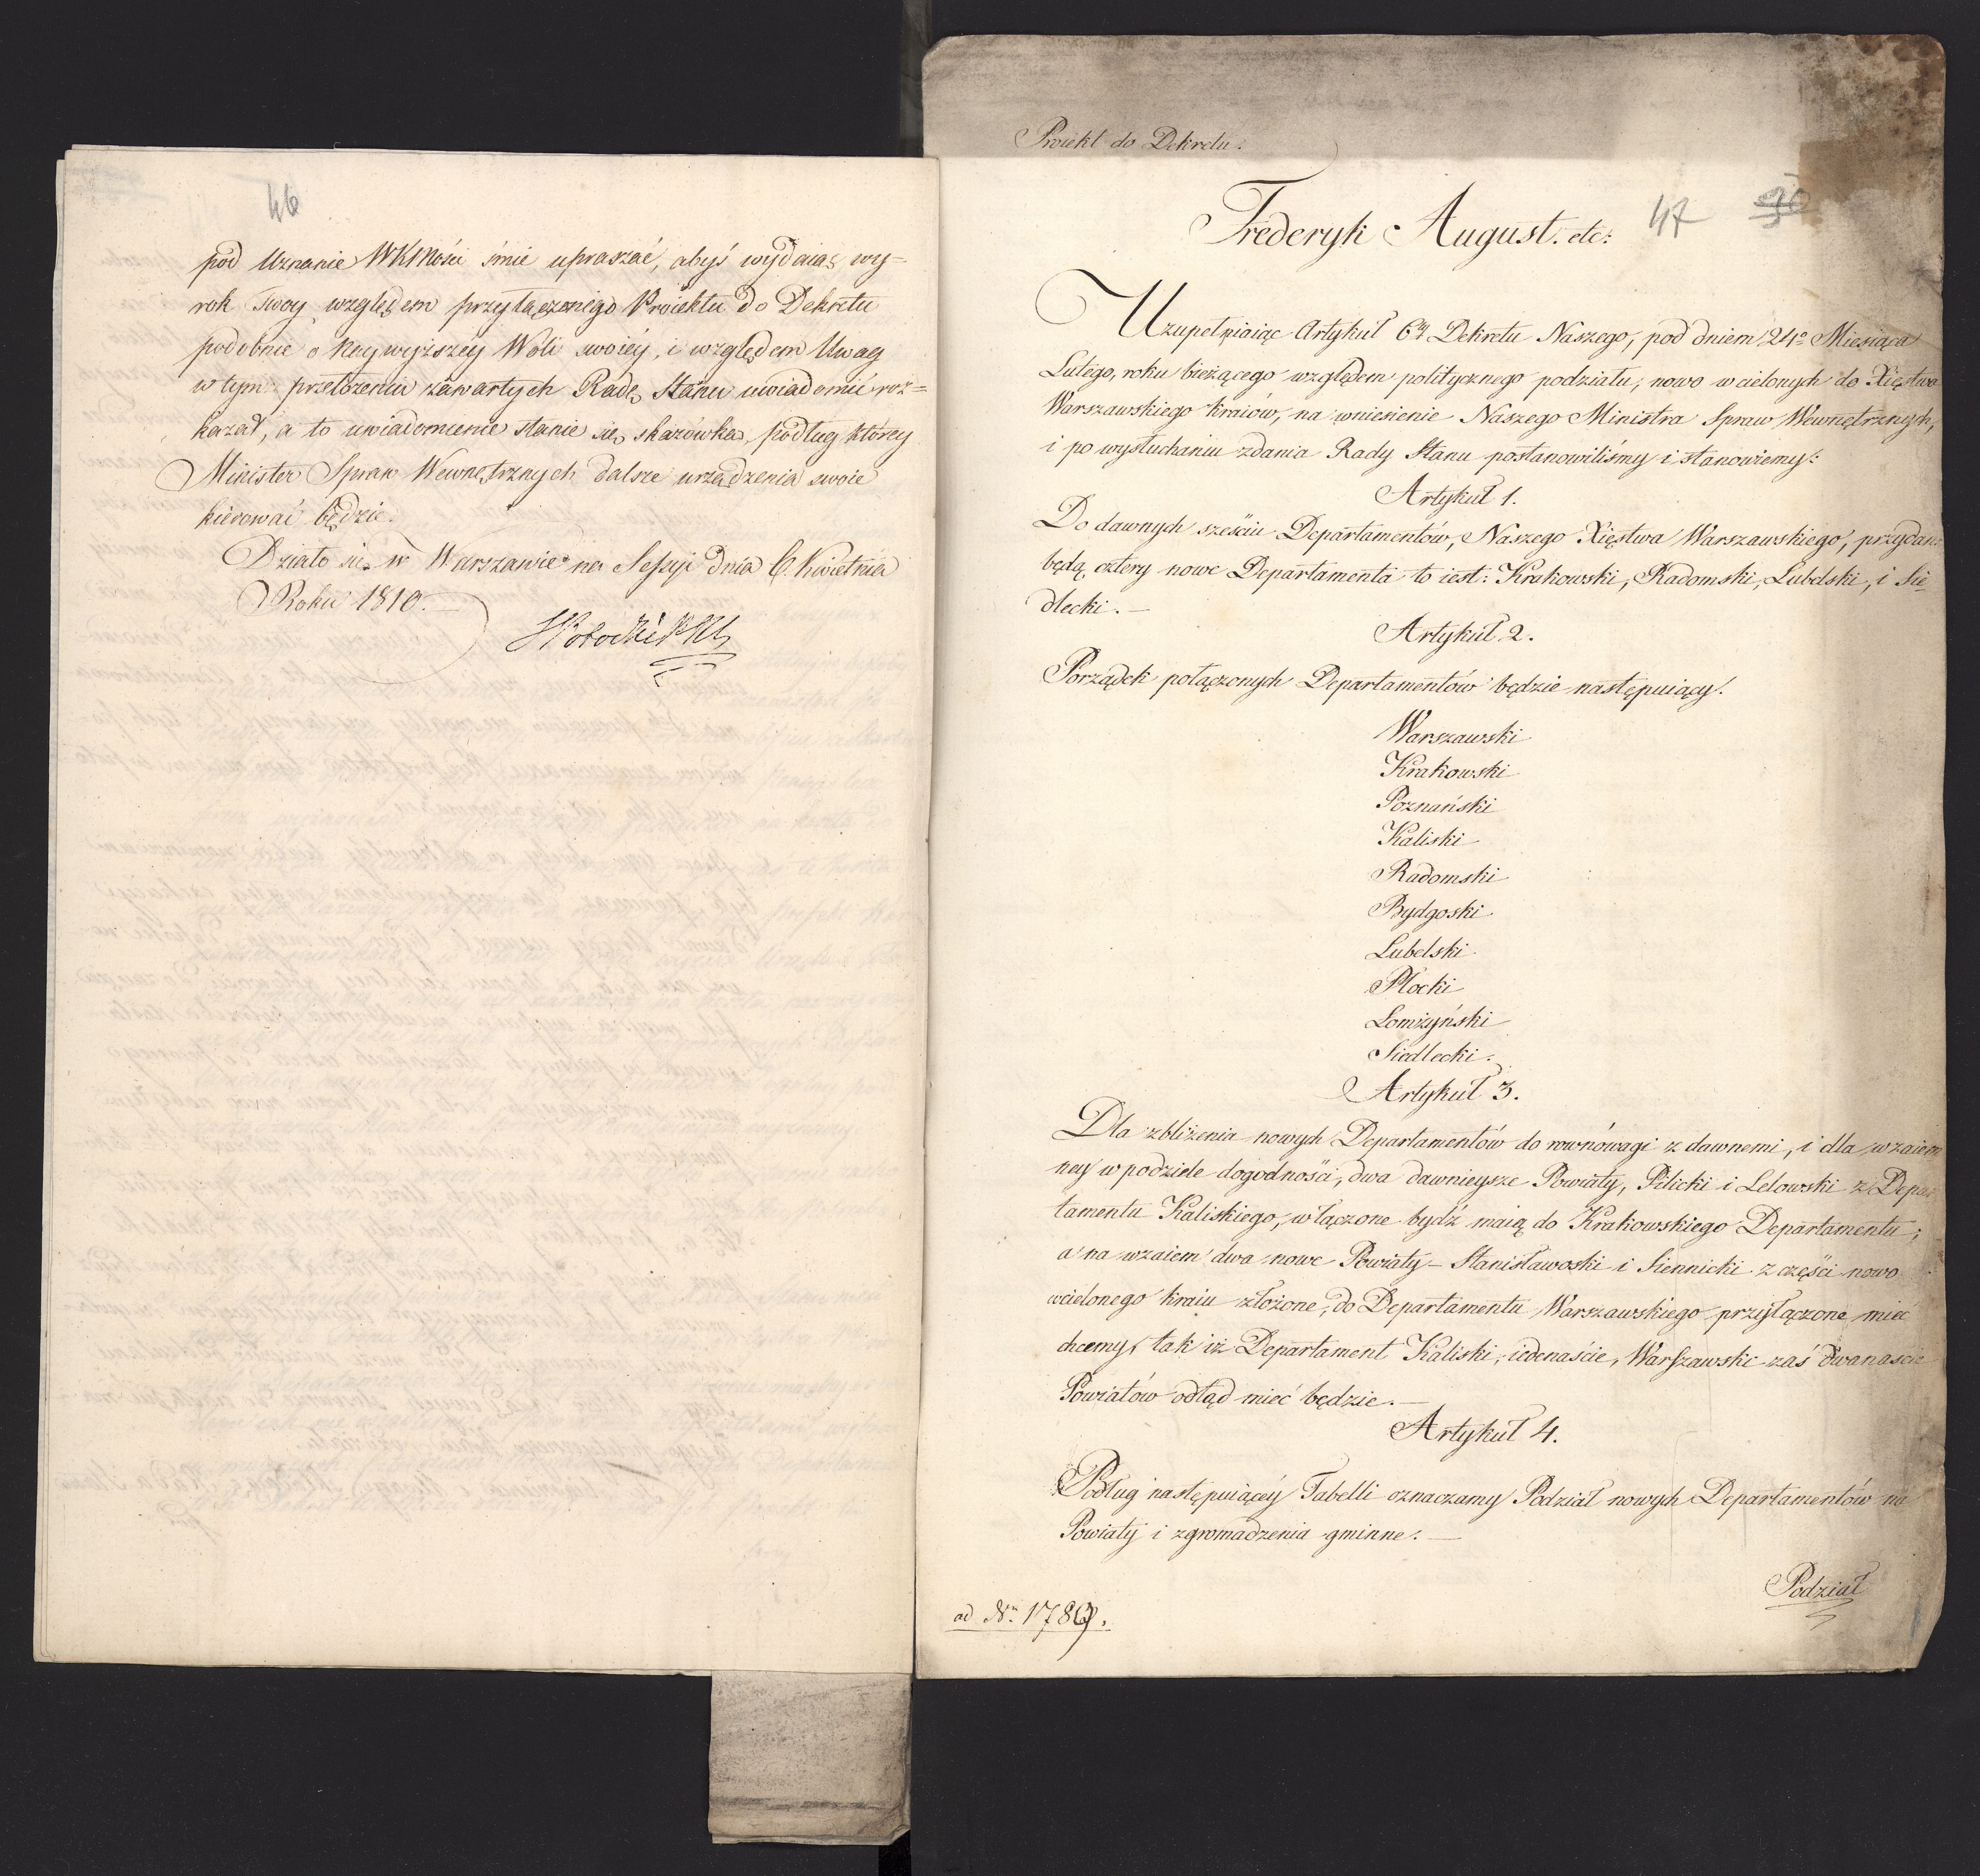 46
pod Uznanie WKMości śmie upraszać, abyś wydaiąc wy=
rok Twoy względem przyłączonego Proiektu do Dekretu
podobnie o Naywyższéy Woli swoiéy, i względem Uwag
w tym przełożeniu zawartych Radę Stanu uwiadomić roz=
kazał, a to uwiadomienie stanie się skazówką, podług którey
Minister Spraw Wewnętrznych dalsze urządzenia swoie
kierować będzie.
Działo się w Warszawie na Sessyi dnia 6. Kwietnia
Roku 1810.
Proiekt do Dekretu.
47 90
Frederyk August. etc:
Uzupełniaiąc Artykuł 6ty Dekretu Naszego, pod dniem 24o Miesiąca
Lutego, roku bieżącego względem politycznego podziału, nowo wcielonych do Xięstwa
Warszawskiego kraiów, na wniesienie Naszego Ministra Spraw Wewnętrznych,
i po wysłuchaniu zdania Rady Stanu postanowiliśmy i stanowiemy:
Artykuł 1.
Do dawnych sześciu Departamentów, Naszego Xięstwa Warszawskiego, przydane
będą cztery nowe Departamenta to iest: Krakowski, Radomski, Lubelski, i Sie=
dlecki.
Artykuł 2.
Porządek połączonych Departamentów będzie następuiący.
Warszawski
Krakowski
Poznański
Kaliski
Radomski
Bydgoski
Lubelski
Płocki
Łomżyński
Siedlecki.
Artykuł 3.
Dla zbliżenia nowych Departamentów do rownówagi z dawnemi, i dla wzaiem
ney w podziele dogodności, dwa dawnieysze Powiaty, Pilicki i Lelowski z Depar
tamentu Kaliskiego, włączone bydź maią do Krakowskiego Departamentu;
a na wzaiem dwa nowe Powiaty – Stanisławoski i Siennicki z części nowo
wcielonego kraiu złożone, do Departamentu Warszawskiego przyłączone mieć
chcemy, tak iż Departament Kaliski, iedenaście, Warszawski zaś dwanaście
Powiatów odtąd mieć będzie.
Artykuł 4.
Podług następuiącéy Tabelli oznaczamy Podział nowych Departamentów na
Powiaty i zgromadzenia gminne.
Podział
ad Nr.